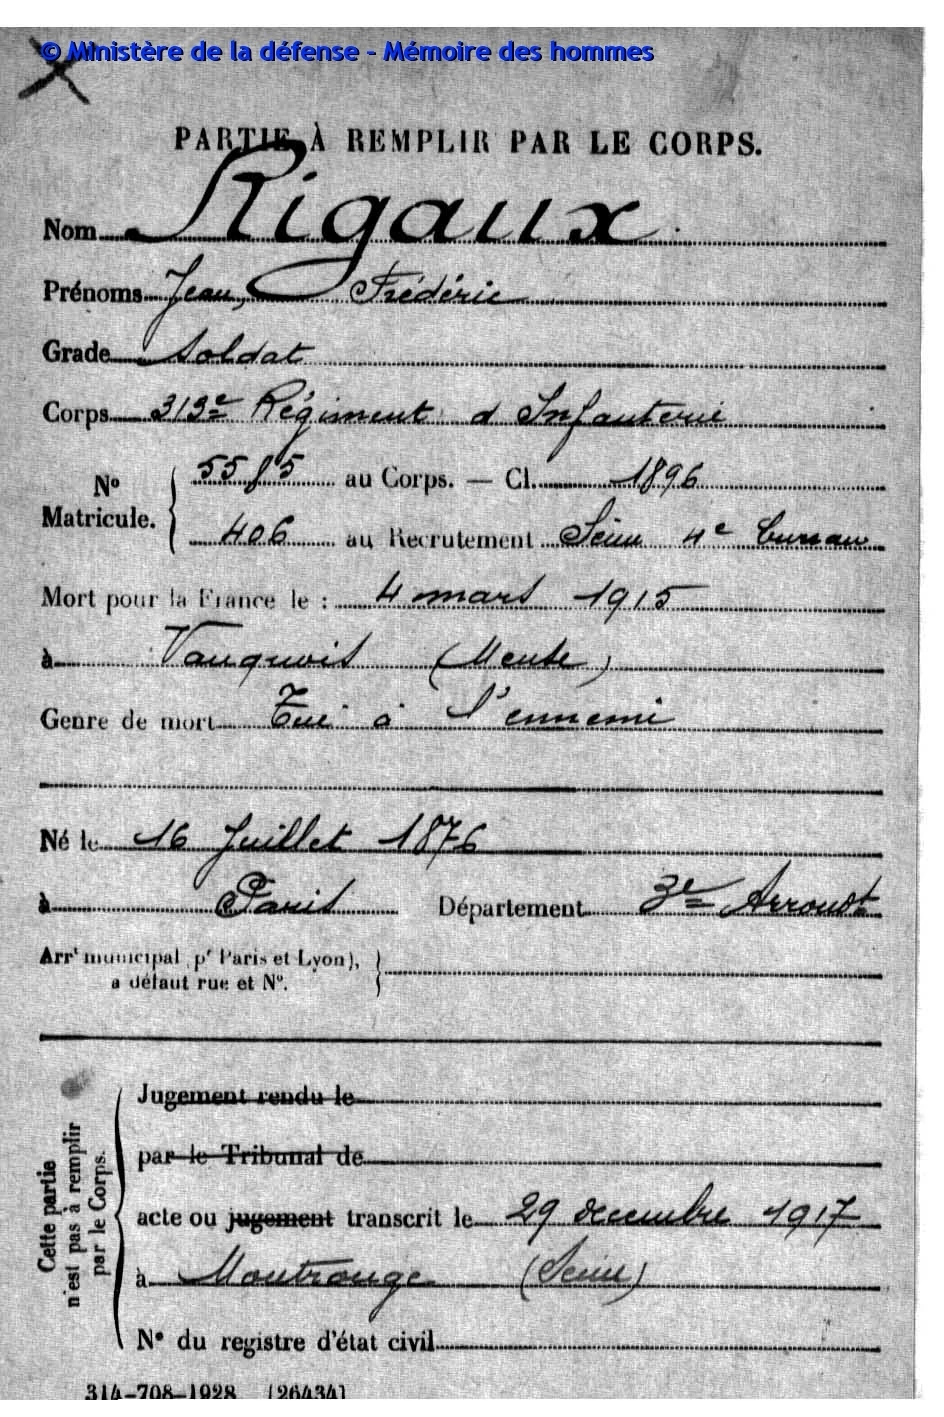 © Ministère de la défense - Mémoire des hommes
PARTIE À REMPLIR PAR LE CORPS.
Nom Rigaux
Prénoms Jean, Frédéric
Grade Soldat
Corps 313e Régiment d'Infanterie
No Matricule. 5585 au Corps. — Cl. 1896
406 au Recrutement Seine 4e bureau
Mort pour la France le : 4 mars 1915
à Vauquois (Meuse)
Genre de mort Tué à l'ennemi
Né le 16 Juillet 1876
à Paris Département 3e Arrondt
Arrt municipal (pr Paris et Lyon),
à défaut rue et No.
Cette partie n'est pas à remplir par le Corps.
Jugement rendu le
par le Tribunal de
acte ou jugement transcrit le 29 decembre 1917
à Montrouge (Seine)
No du registre d'état civil
314-708-1928. [26434]